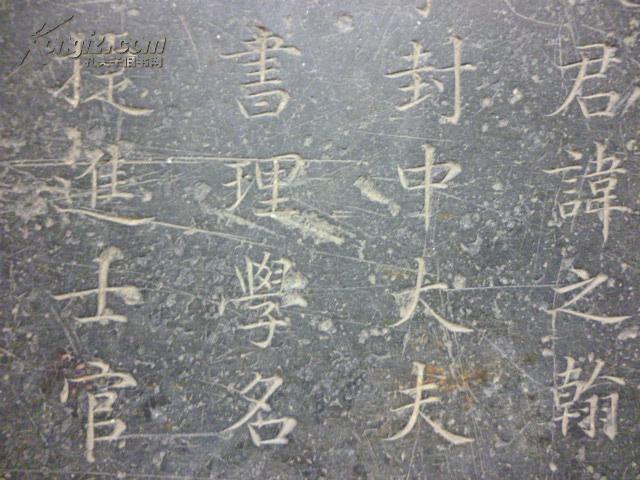 君諱之翰
封中大夫
書理學名
捷進士官
Kongfz.com
孔夫子旧书网